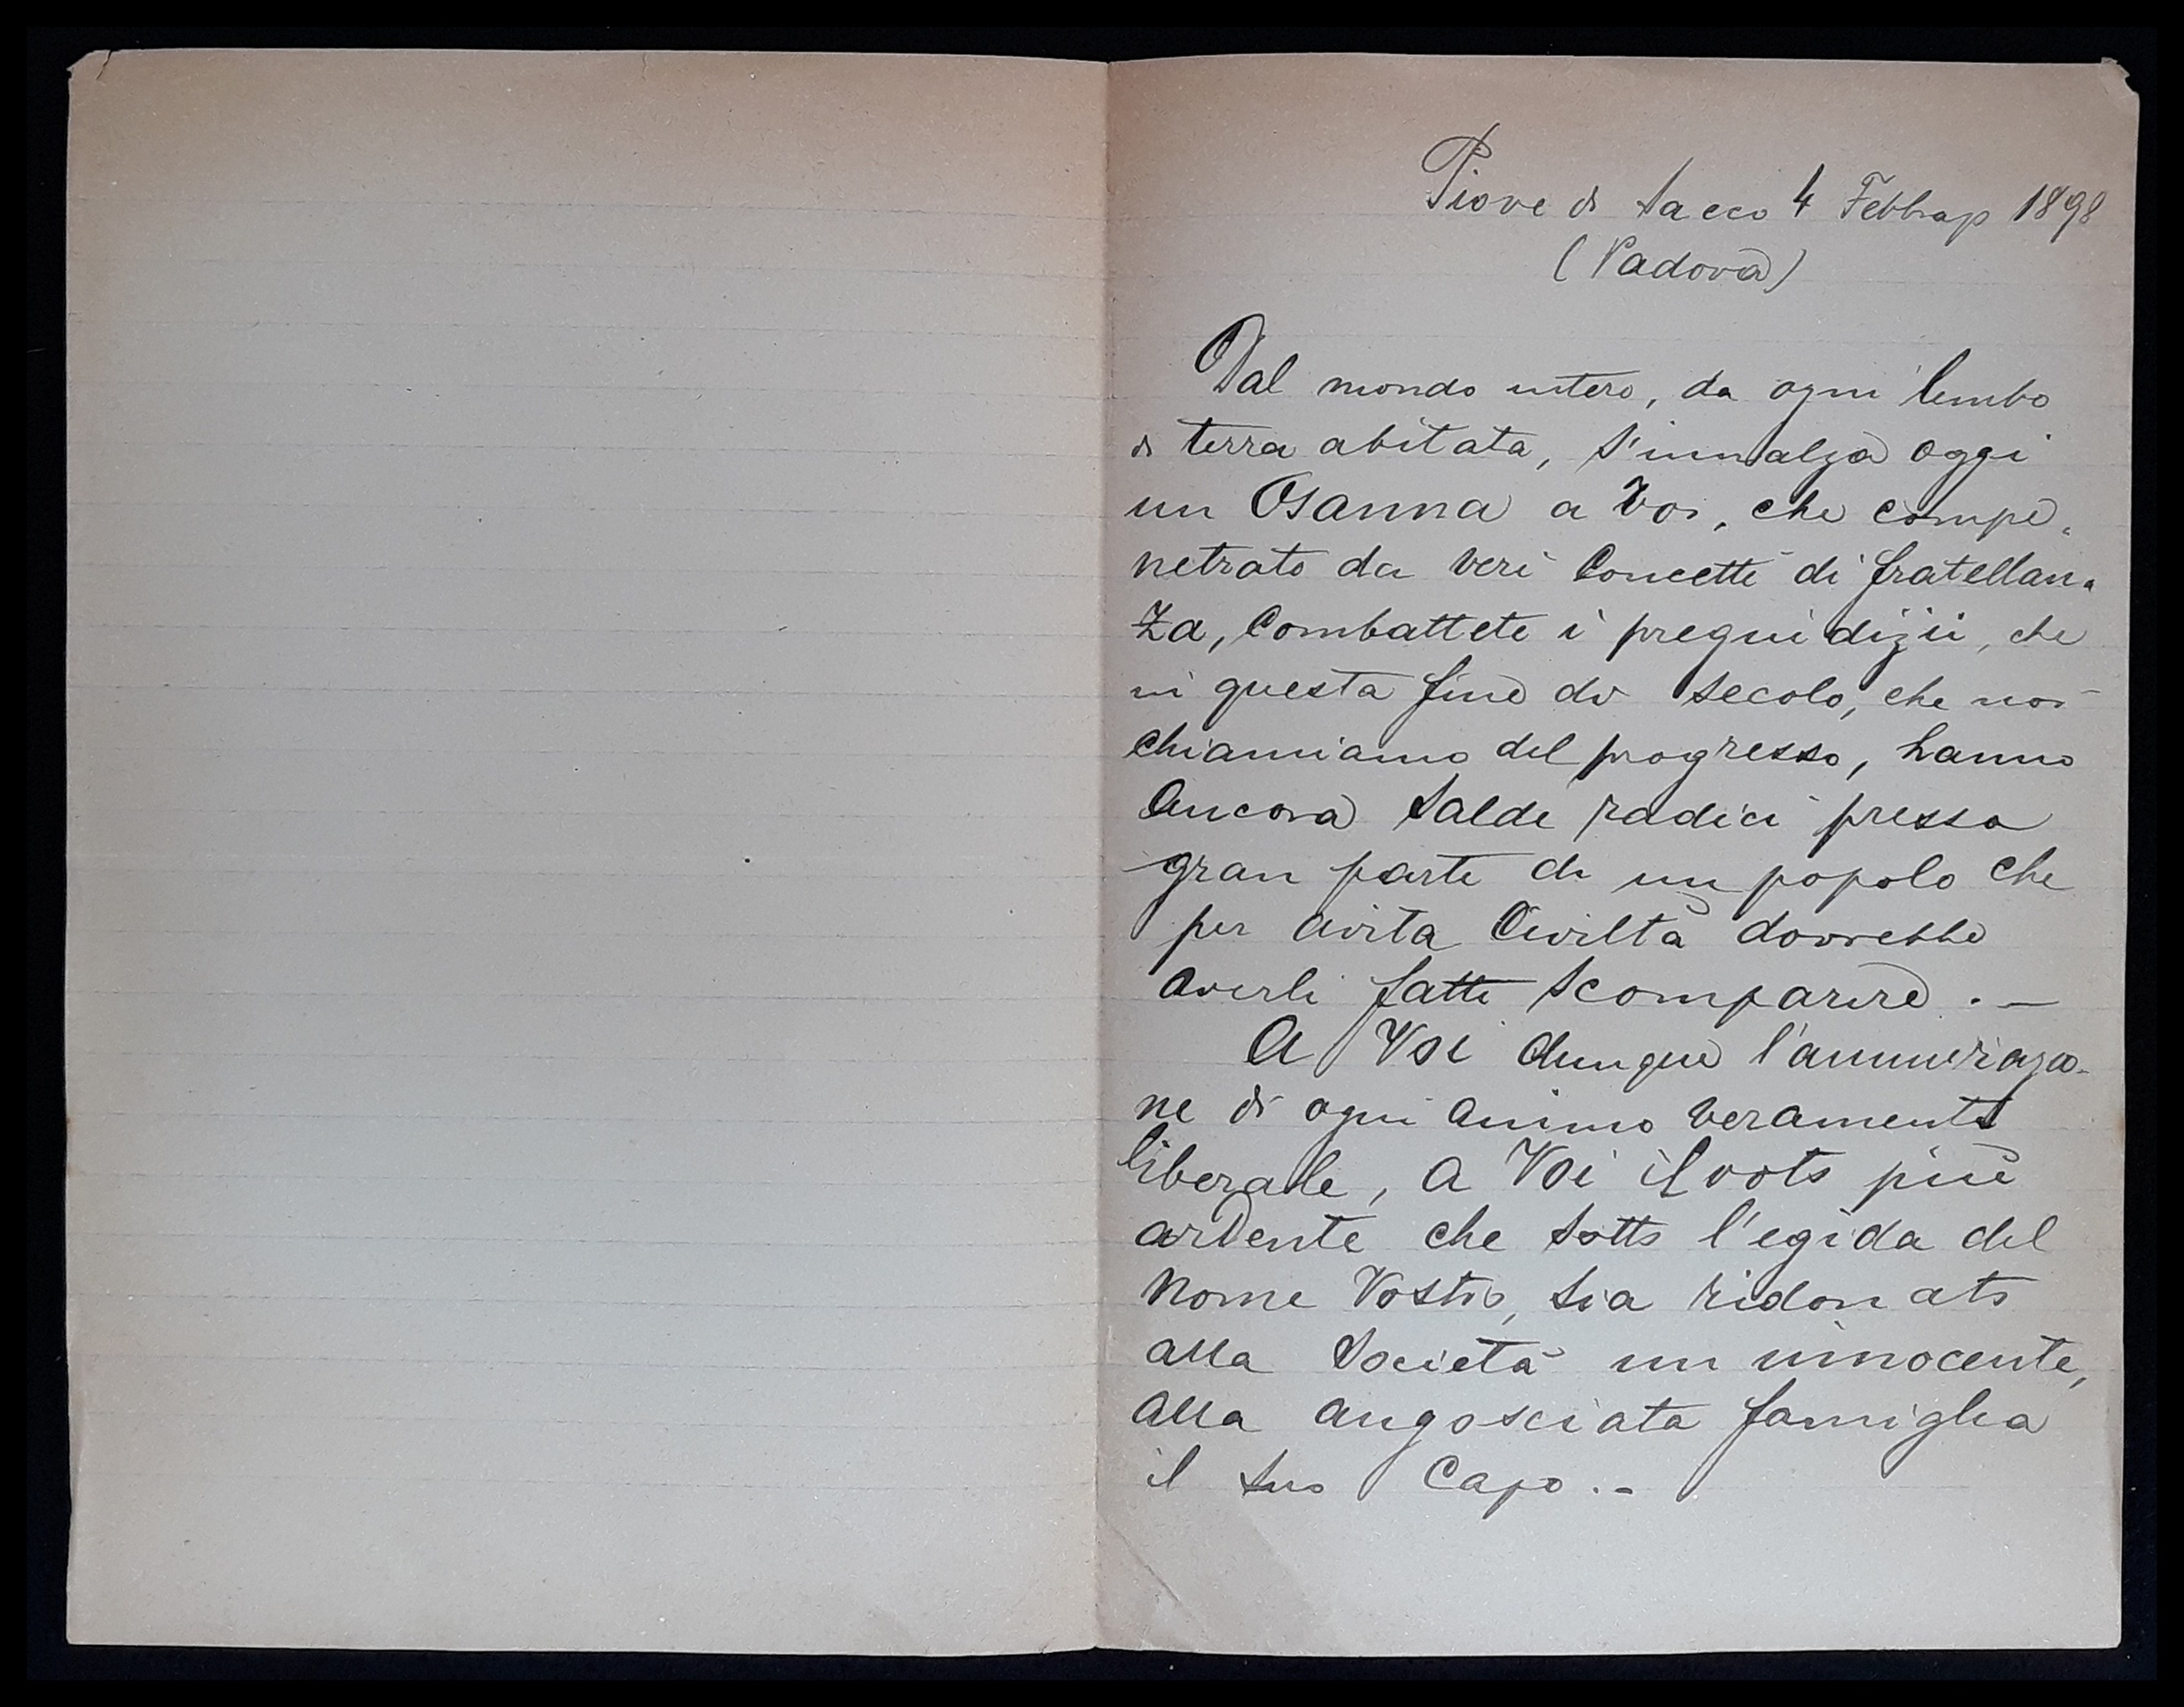 Piove di Sacco 4 Febbrajo 1898
(Padova)
Dal mondo intero, da ogni lembo
di terra abitata, s'innalza oggi
un Osanna a Voi, che compe=
netrato da veri Concetti di fratellan=
za, Combattete i pregiudizii, che
in questa fine di secolo, che noi
Chiamiamo del progresso, hanno
Ancora salde radici presso
gran parte di un popolo che
per avita Civiltà dovrebbe
averli fatti scomparire. —
A Voi dunque l'ammirazio-
ne di ogni animo veramente
liberale, a Voi il voto più
ardente che sotto l'egida del
Nome Vostro, sia ridonato
alla Società un innocente,
alla angosciata famiglia
il suo Capo. -